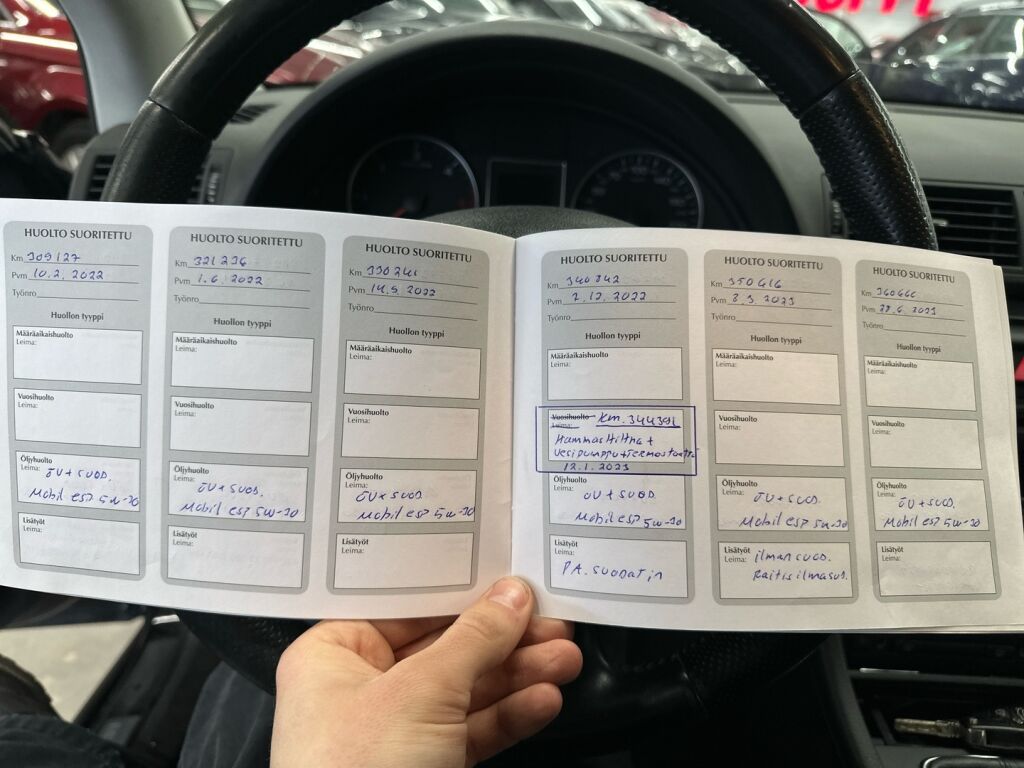 HUOLTO SUORITETTU
Km 309127
Pvm 10.2. 2022
Työnro
Huollon tyyppi
Määräaikaishuolto
Leima:
Vuosihuolto
Leima:
Öljyhuolto
Leima: ÖV+SUOD.
Mobil ESP 5W-30
Lisätyöt
Leima:
HUOLTO SUORITETTU
Km 321236
Pvm 1.6. 2022
Työnro
Huollon tyyppi
Määräaikaishuolto
Leima:
Vuosihuolto
Leima:
Öljyhuolto
Leima: ÖV+SUOD.
Mobil ESP 5W-30
Lisätyöt
Leima:
HUOLTO SUORITETTU
Km 330241
Pvm 14.9. 2022
Työnro
Huollon tyyppi
Määräaikaishuolto
Leima:
Vuosihuolto
Leima:
Öljyhuolto
Leima: ÖV+SUOD.
Mobil ESP 5W-30
Lisätyöt
Leima:
HUOLTO SUORITETTU
Km 340842
Pvm 2.12. 2022
Työnro
Huollon tyyppi
Määräaikaishuolto
Leima:
Vuosihuolto Km. 344391
Leima:
Hammashihna +
Vesipumppu+Termostaatti
12.1. 2023
Öljyhuolto
Leima: ÖV+SUOD.
Mobil ESP 5W-30
Lisätyöt
Leima:
P.A. SUODATIN
HUOLTO SUORITETTU
Km 350616
Pvm 8.3. 2023
Työnro
Huollon tyyppi
Määräaikaishuolto
Leima:
Vuosihuolto
Leima:
Öljyhuolto
Leima: ÖV+SUOD.
Mobil ESP 5W-30
Lisätyöt
Leima: ilmansuod.
Raitisilmasuod.
HUOLTO SUORITETTU
Km 360666
Pvm 28.6. 2023
Työnro
Huollon tyyppi
Määräaikaishuolto
Leima:
Vuosihuolto
Leima:
Öljyhuolto
Leima: ÖV+SUOD.
Mobil ESP 5W-30
Lisätyöt
Leima: